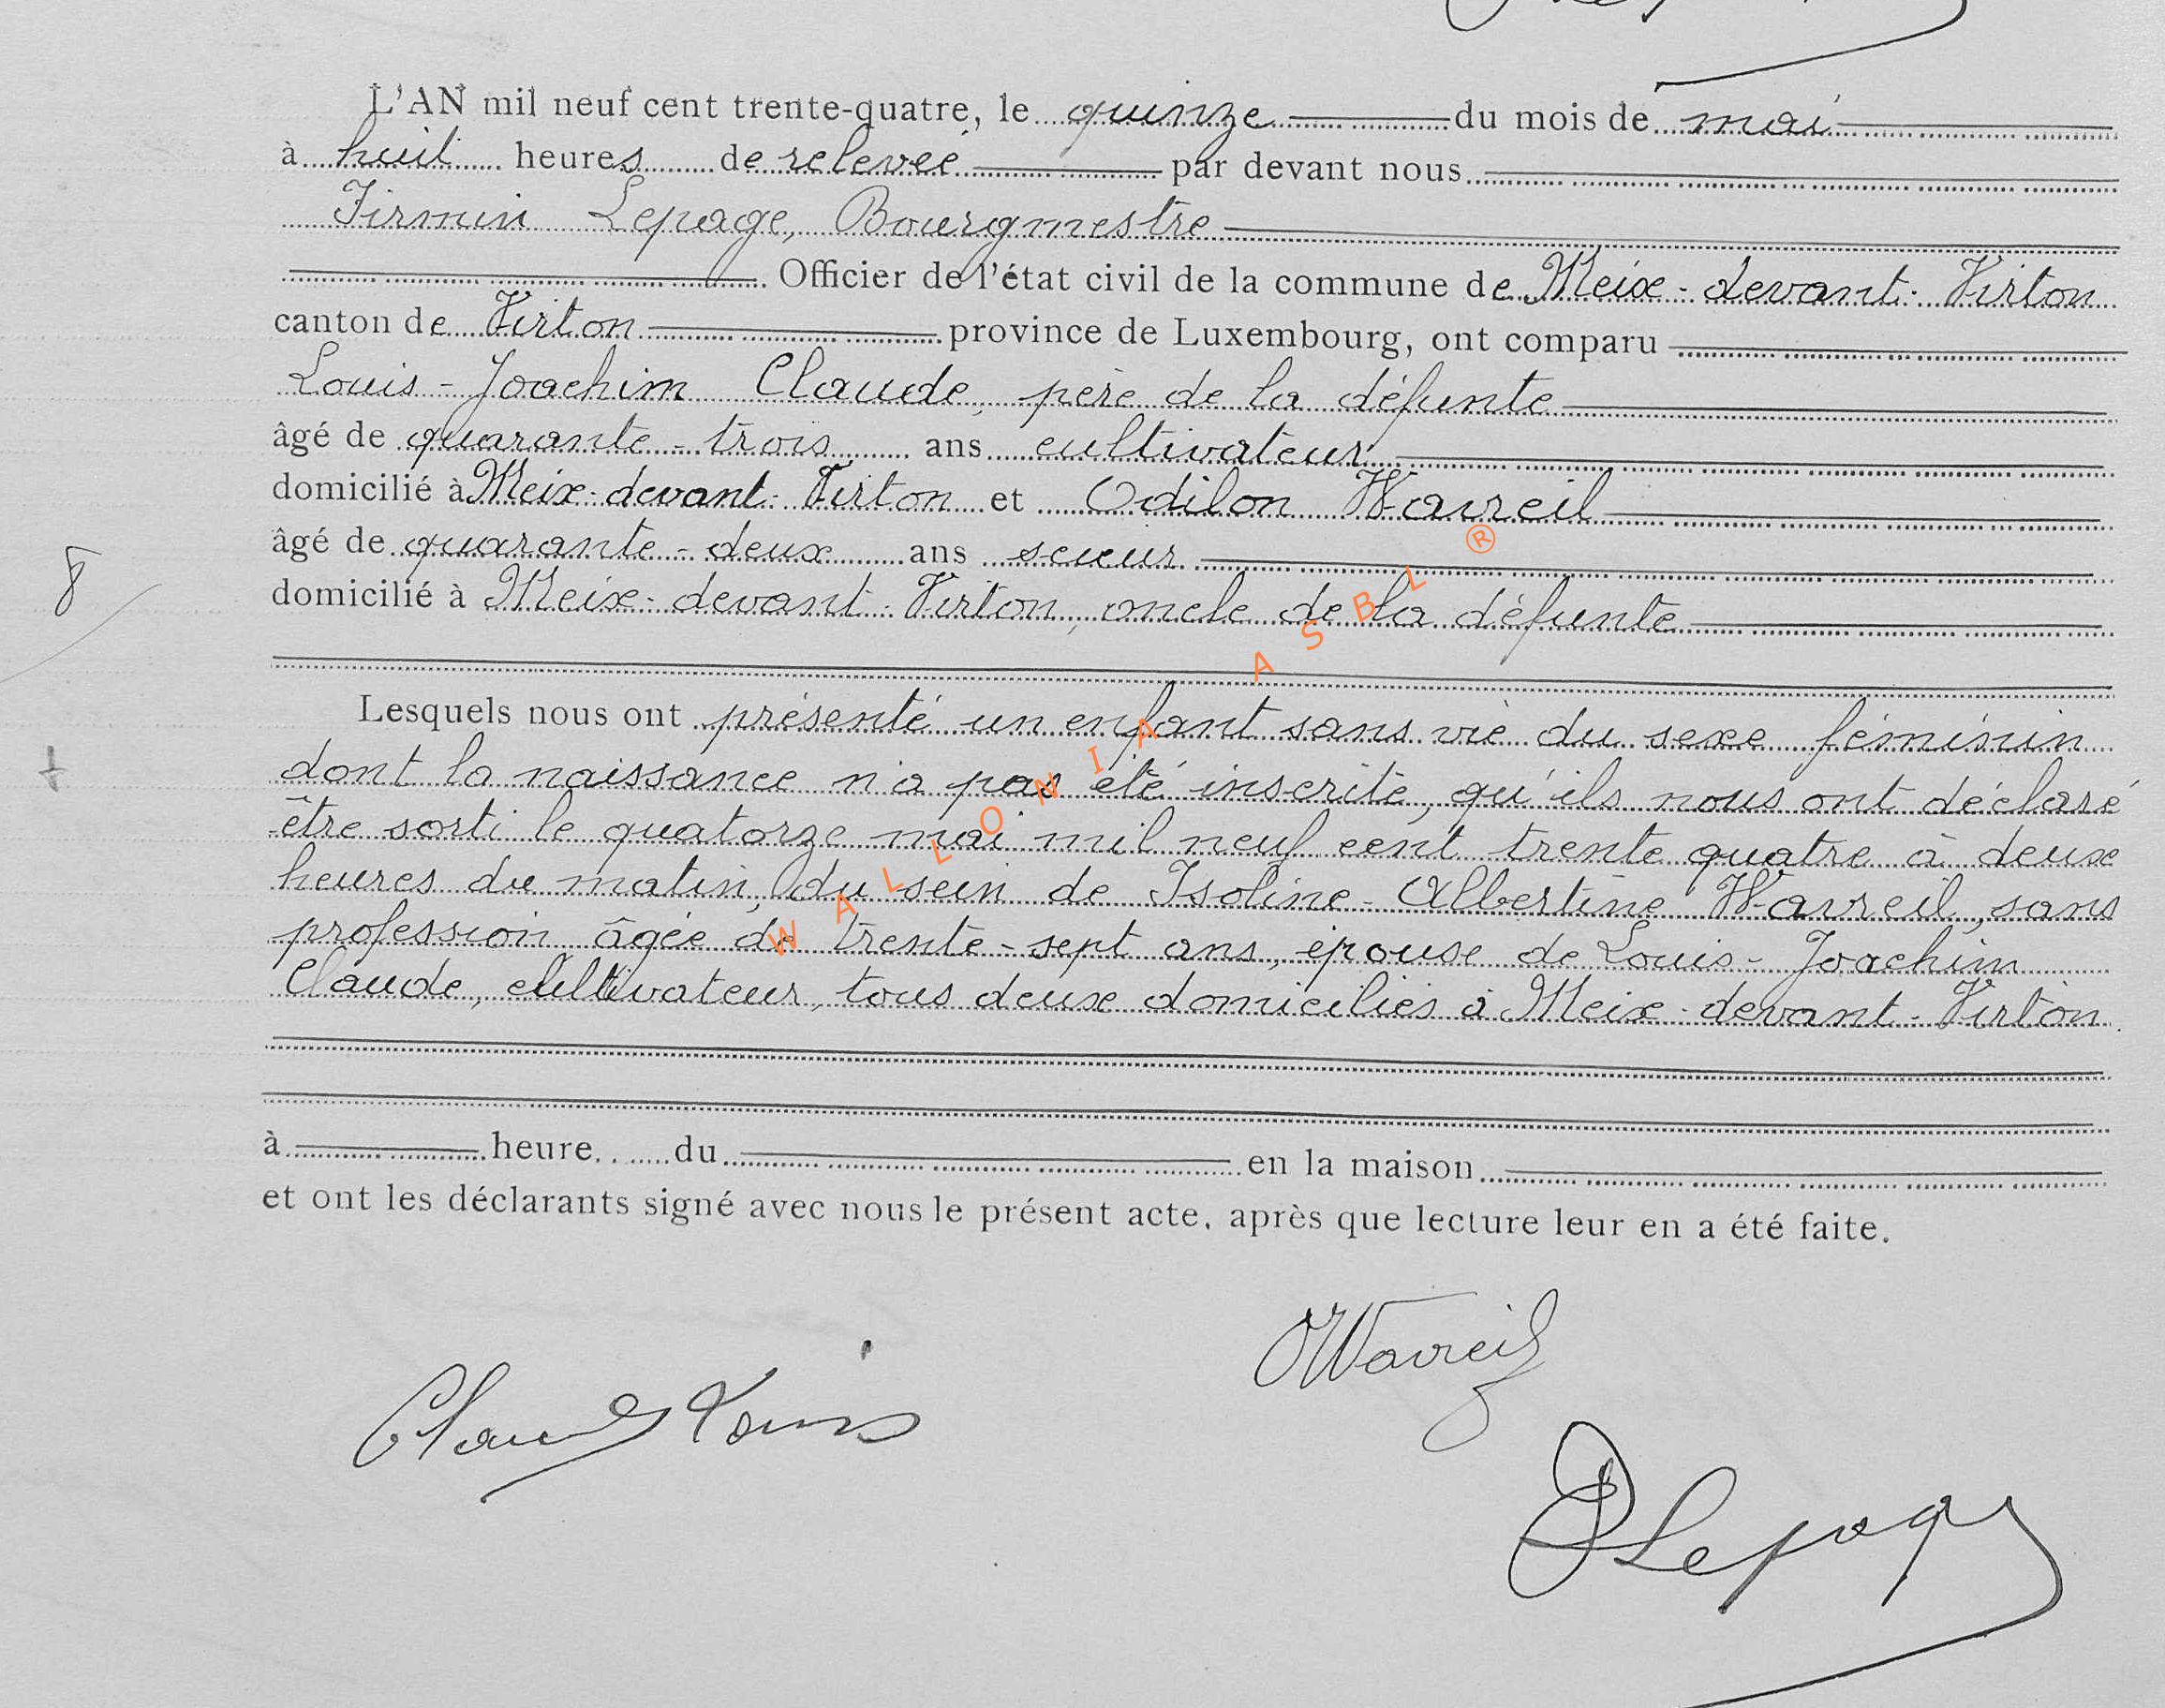 L'AN mil neuf cent trente-quatre, le quinze du mois de mai
à huit heures de relevée par devant nous
Firmin Lepage, Bourgmestre
Officier de l'état civil de la commune de Meix-devant-Virton
canton de Virton province de Luxembourg, ont comparu
Louis-Joachim Claude, père de la défunte
âgé de quarante-trois ans cultivateur
domicilié à Meix-devant-Virton et Odilon Wavreil
âgé de quarante-deux ans scieur
8
domicilié à Meix-devant-Virton, oncle de la défunte
Lesquels nous ont présenté un enfant sans vie du sexe féminin
dont la naissance n'a pas été inscrite, qu'ils nous ont déclaré
être sorti le quatorze mai mil neuf cent trente quatre à deux
heures du matin, du sein de Isoline-Albertine Wavreil, sans
profession âgée de trente-sept ans, épouse de Louis-Joachim
Claude, cultivateur, tous deux domiciliés à Meix-devant-Virton.
à heure du en la maison
et ont les déclarants signé avec nous le présent acte, après que lecture leur en a été faite.
OWavreil
Claude Louis
Lepage
WALLONIA ASBL ®